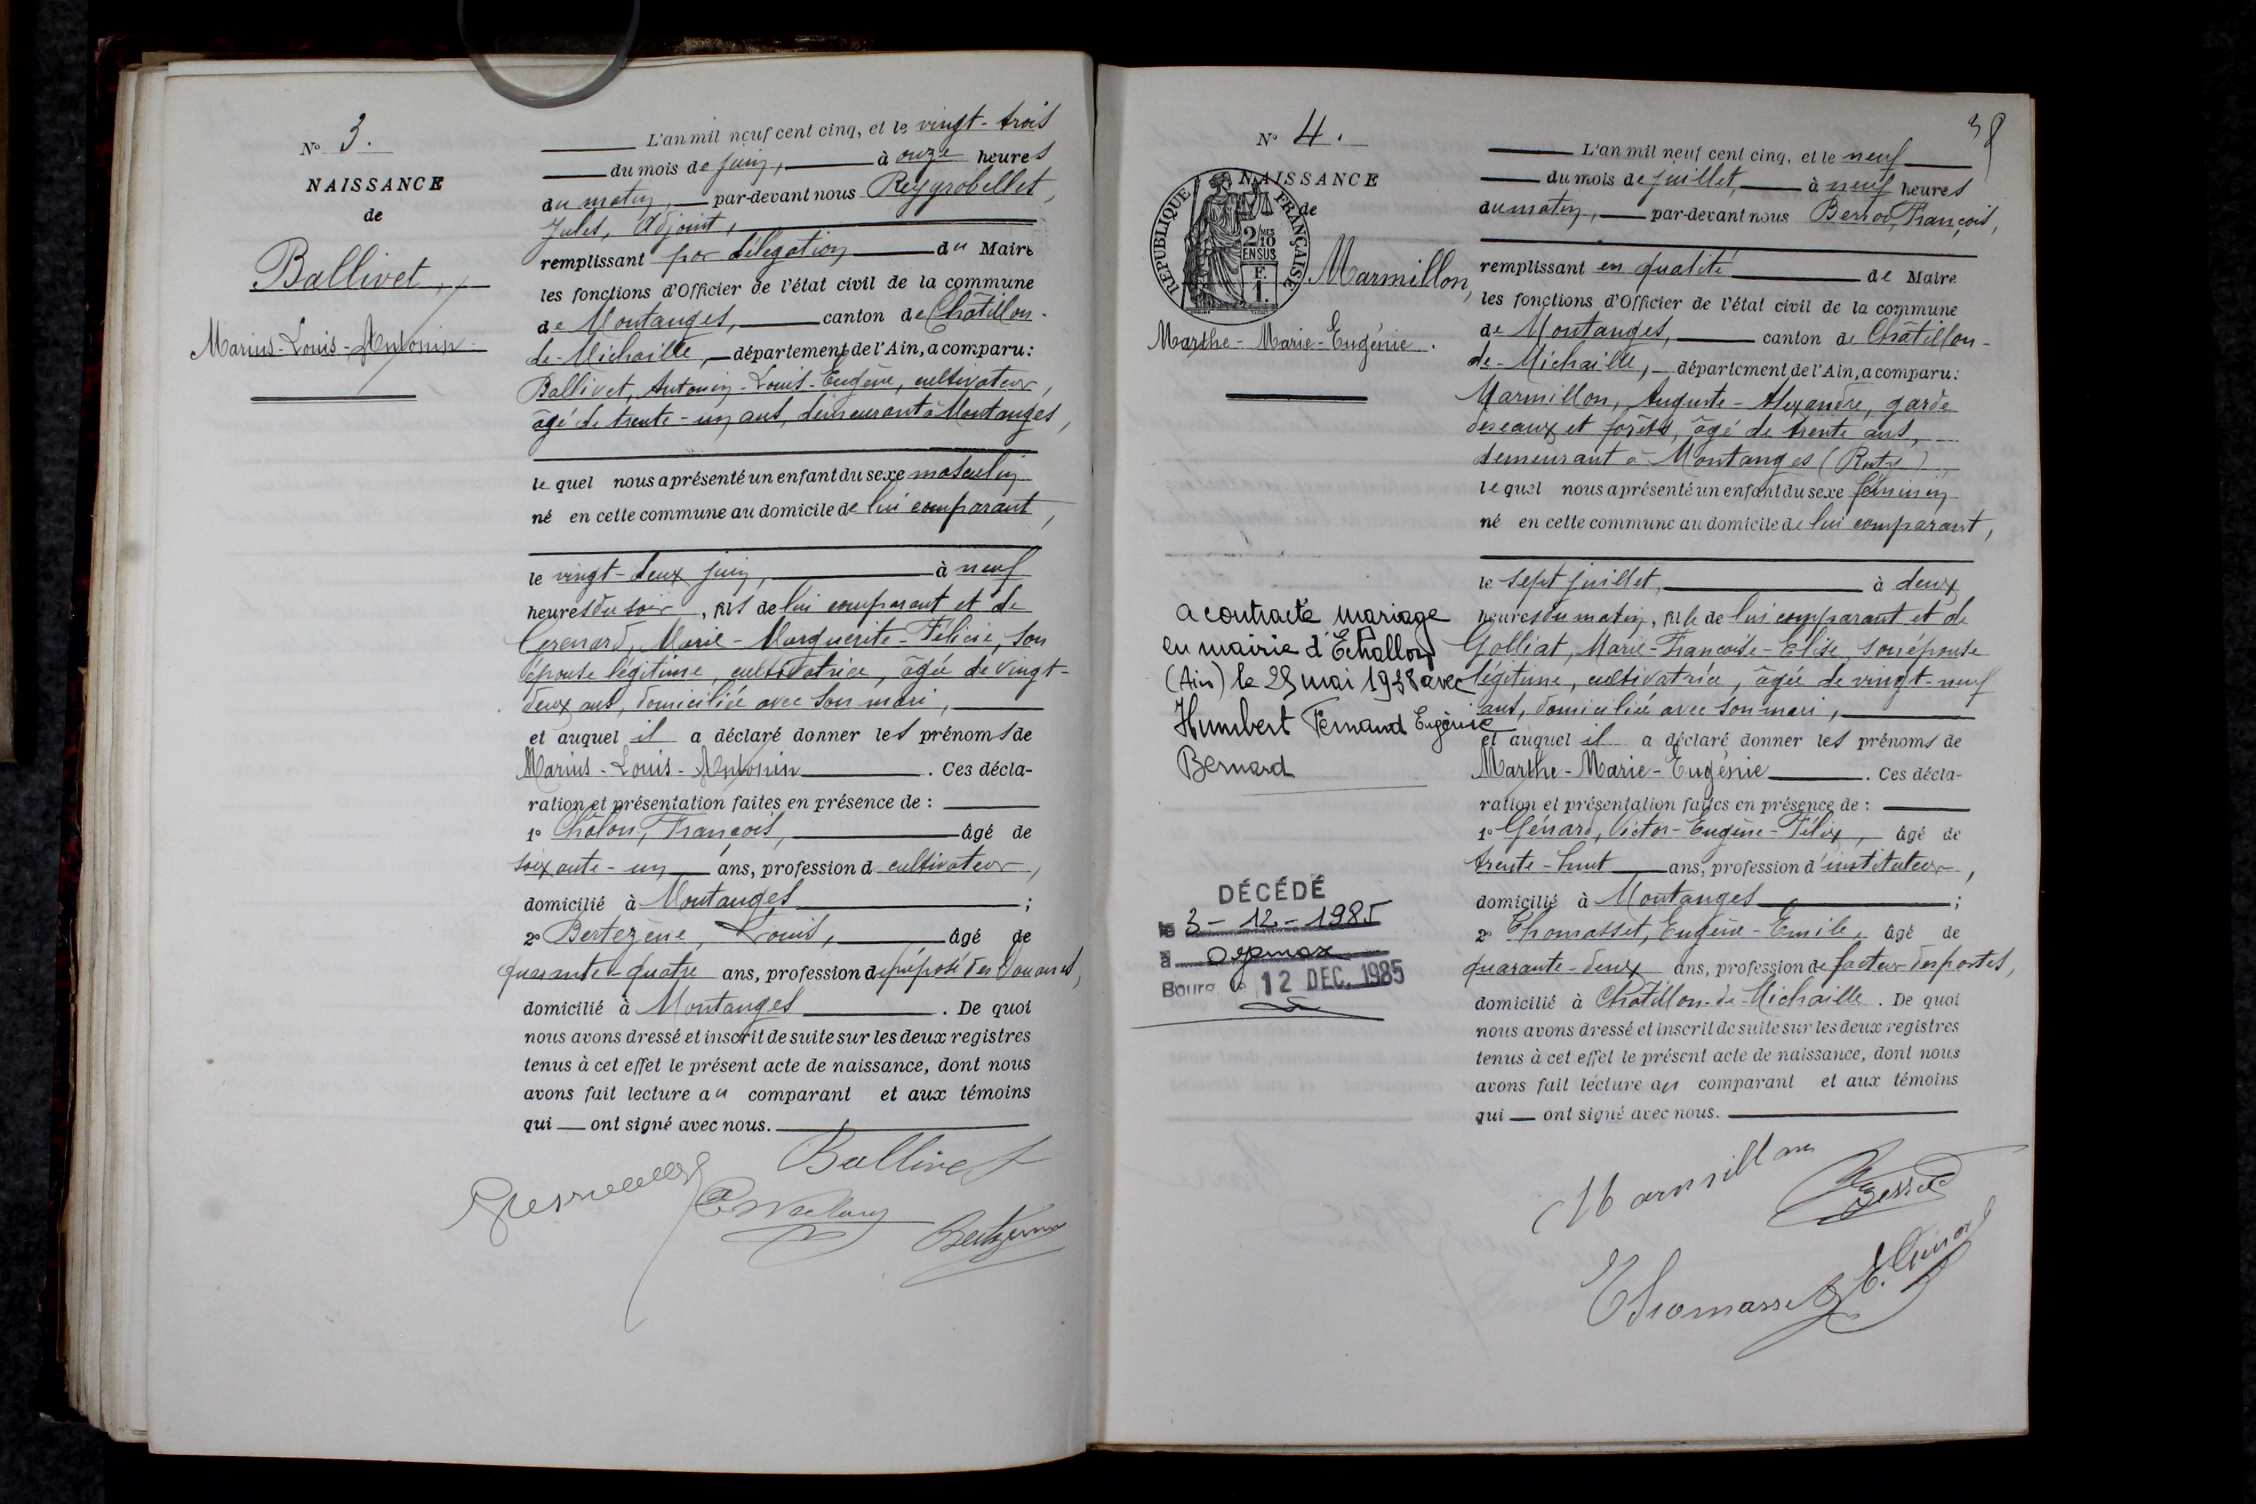 N° 3.
NAISSANCE
de
Ballivet,
Marius-Louis-Antonin
L'an mil neuf cent cinq, et le vingt-trois
du mois de juin, à onze heures
du matin, par-devant nous Reygrobellet,
Jules, Adjoint,
remplissant par délégation du Maire
les fonctions d'Officier de l'état civil de la commune
de Montanges, canton de Châtillon-
de-Michaille, département de l'Ain, a comparu:
Ballivet, Antonin-Louis-Eugène, cultivateur,
âgé de trente-un ans, demeurant à Montanges,
le quel nous a présenté un enfant du sexe masculin
né en cette commune au domicile de lui comparant,
le vingt-deux juin, à neuf
heures du soir, fils de lui comparant et de
Marie-Marguerite-Félicie, son
épouse légitime, cultivatrice, âgée de vingt-
deux ans, domiciliée avec son mari,
et auquel il a déclaré donner les prénoms de
Marius-Louis-Antonin. Ces décla-
ration et présentation faites en présence de :
1° Châlon, François, âgé de
soixante-un ans, profession d cultivateur,
domicilié à Montanges ;
2° Bertezène, Louis, âgé de
quarante-quatre ans, profession de préposé des Douanes,
domicilié à Montanges. De quoi
nous avons dressé et inscrit de suite sur les deux registres
tenus à cet effet le présent acte de naissance, dont nous
avons fait lecture au comparant et aux témoins
qui ont signé avec nous.
Ballivet
38
N° 4.
NAISSANCE
de
RÉPUBLIQUE FRANÇAISE
2/10 MES
EN SUS
F.
1.
Marmillon,
Marthe-Marie-Eugénie.
L'an mil neuf cent cinq, et le neuf
du mois de juillet, à neuf heures
du matin, par-devant nous François,
remplissant en qualité de Maire
les fonctions d'Officier de l'état civil de la commune
de Montanges, canton de Châtillon-
de-Michaille, département de l'Ain, a comparu:
Marmillon, Auguste-Alexandre, garde
des eaux et forêts, âgé de trente ans,
demeurant à Montanges
le quel nous a présenté un enfant du sexe féminin
né en cette commune au domicile de lui comparant,
le sept juillet, à deux
heures du matin, fille de lui comparant et de
Golliat, Marie-Françoise-Elise, son épouse
légitime, cultivatrice, âgée de vingt-neuf
ans, domiciliée avec son mari,
et auquel il a déclaré donner les prénoms de
Marthe-Marie-Eugénie. Ces décla-
ration et présentation faites en présence de :
1° Génard, Victor-Eugène-Félix, âgé de
trente-huit ans, profession d'instituteur,
domicilié à Montanges ;
2° Thomasset, Eugène-Emile, âgé de
quarante-deux ans, profession de facteur des postes,
domicilié à Châtillon-de-Michaille. De quoi
nous avons dressé et inscrit de suite sur les deux registres
tenus à cet effet le présent acte de naissance, dont nous
avons fait lecture au comparant et aux témoins
qui ont signé avec nous.
a contracté mariage
en mairie d'Echallon
(Ain) le mai 1938 avec
Humbert Fernand Eugénie
Bernard
DÉCÉDÉ
le 3-12-1985
à oyonnax
Bourg, le 12 DEC. 1985
Marmillon
Thomasset